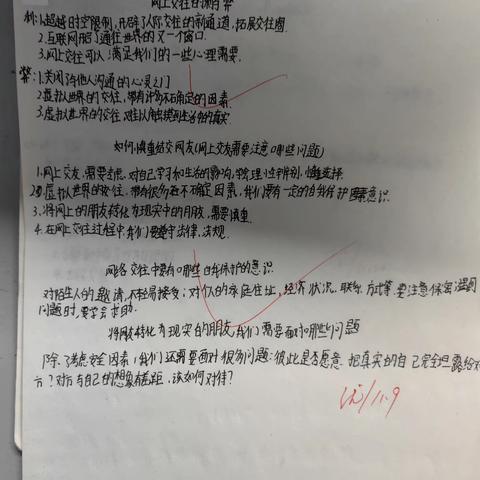 网上交往的利与弊
利:1.超越时空限制,开辟了人际交往的新通道,拓展交往圈
2.互联网開了通往世界的又一个窗口.
3.网上交往可以满足我们的一些心理需要.
弊:1.关闭了与他人沟通的心灵之门
2.虚拟世界的交往,带有许多不确定的因素.
3.虚拟世界的交往,难以触摸到生活中的真实.
如何慎重结交网友(网上交友需要注意哪些问题)
1.网上交友,需要考虑对自己学习和生活的影响,学会理性辨别,慎重选择
2.虚拟世界的交往,带有很多不确定因素,我们要有一定的自我保护意识.
3.将网上的朋友转化为现实中的朋友,需要慎重.
4.在网上交往过程中我们要遵守法律,法规.
网络交往中要有哪些自我保护的意识.
对陌生人的邀请,不轻易接受;对个人的家庭住址,经济状况,联系方式等要注意保密遇到
问题时,要学会求助.
将网友转化为现实的朋友,我们需要面对哪些问题
除了考虑安全因素,我们还需要面对很多问题:彼此是否愿意把真实的自己完全坦露给对
方?对方与自己的想象有差距,该如何对待?
优/11.9